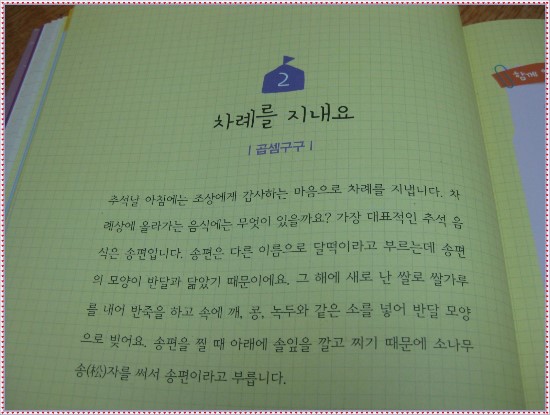 2
차례를 지내요
| 곱셈구구 |
추석날 아침에는 조상에게 감사하는 마음으로 차례를 지냅니다. 차
례상에 올라가는 음식에는 무엇이 있을까요? 가장 대표적인 추석 음
식은 송편입니다. 송편은 다른 이름으로 달떡이라고 부르는데 송편
의 모양이 반달과 닮았기 때문이에요. 그 해에 새로 난 쌀로 쌀가루
를 내어 반죽을 하고 속에 깨, 콩, 녹두와 같은 소를 넣어 반달 모양
으로 빚어요. 송편을 찔 때 아래에 솔잎을 깔고 찌기 때문에 소나무
송(松)자를 써서 송편이라고 부릅니다.
함께